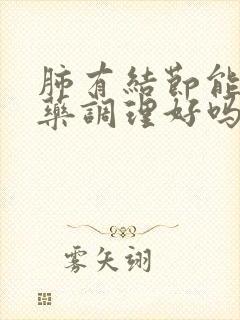 肺有結節能
藥調理好嗎
雾矢翊